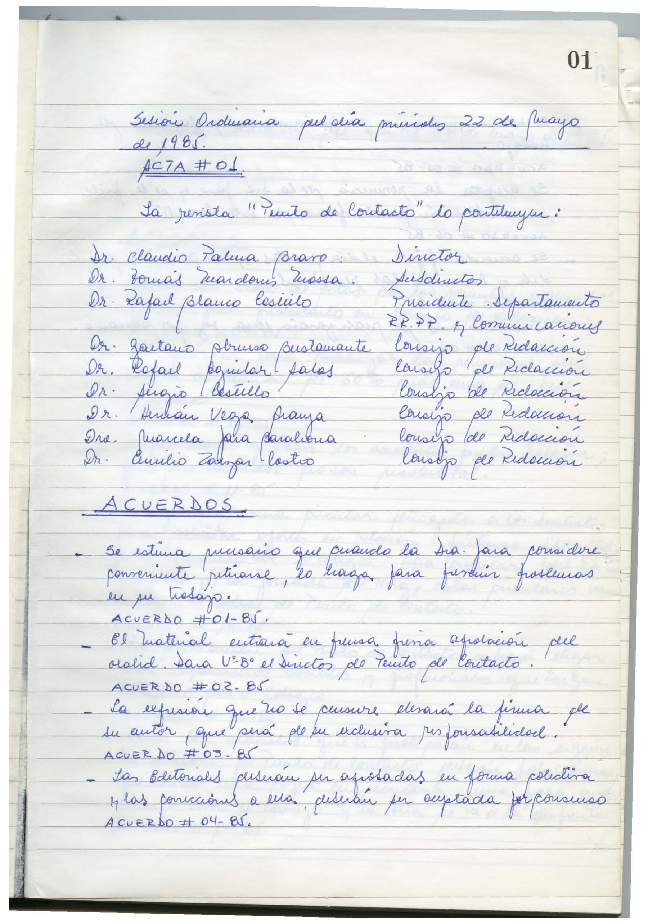 01
Sesión Ordinaria del día miércoles 22 de Mayo
de 1985.
ACTA # 01
La revista "Punto de Contacto" lo constituyen:
Dr. Claudio Palma Bravo. Director
Dr. Tomás Mardones Mossa. Subdirector
Dr. Rafael Blanco Castillo Presidente Departamento
RR.PP. y Comunicaciones
Dr. Gaetano Bustamante Consejo de Redacción
Dr. Rafael Aguilar Salas Consejo de Redacción
Dr. Sergio Castillo Consejo de Redacción
Dr. Hernán Vega Consejo de Redacción
Dra. Marcela Jara Barahona Consejo de Redacción
Dr. Emilio Castro Consejo de Redacción
ACUERDOS
- Se estima necesario que cuando la Dra. Jara considere
conveniente retirarse, lo haga para prevenir problemas
en su trabajo.
ACUERDO # 01-85.
- El Material entrará en prensa previa aprobación del
Dará Vº-Bº el Director de Punto de Contacto.
ACUERDO # 02-85
- La expresión que no se censure llevará la firma de
su autor, que será de su exclusiva responsabilidad.
ACUERDO # 03-85
- Las Editoriales deberán ser aprobadas en forma colectiva
y las correcciones a ella, deberán ser aceptada por consenso
ACUERDO # 04-85.